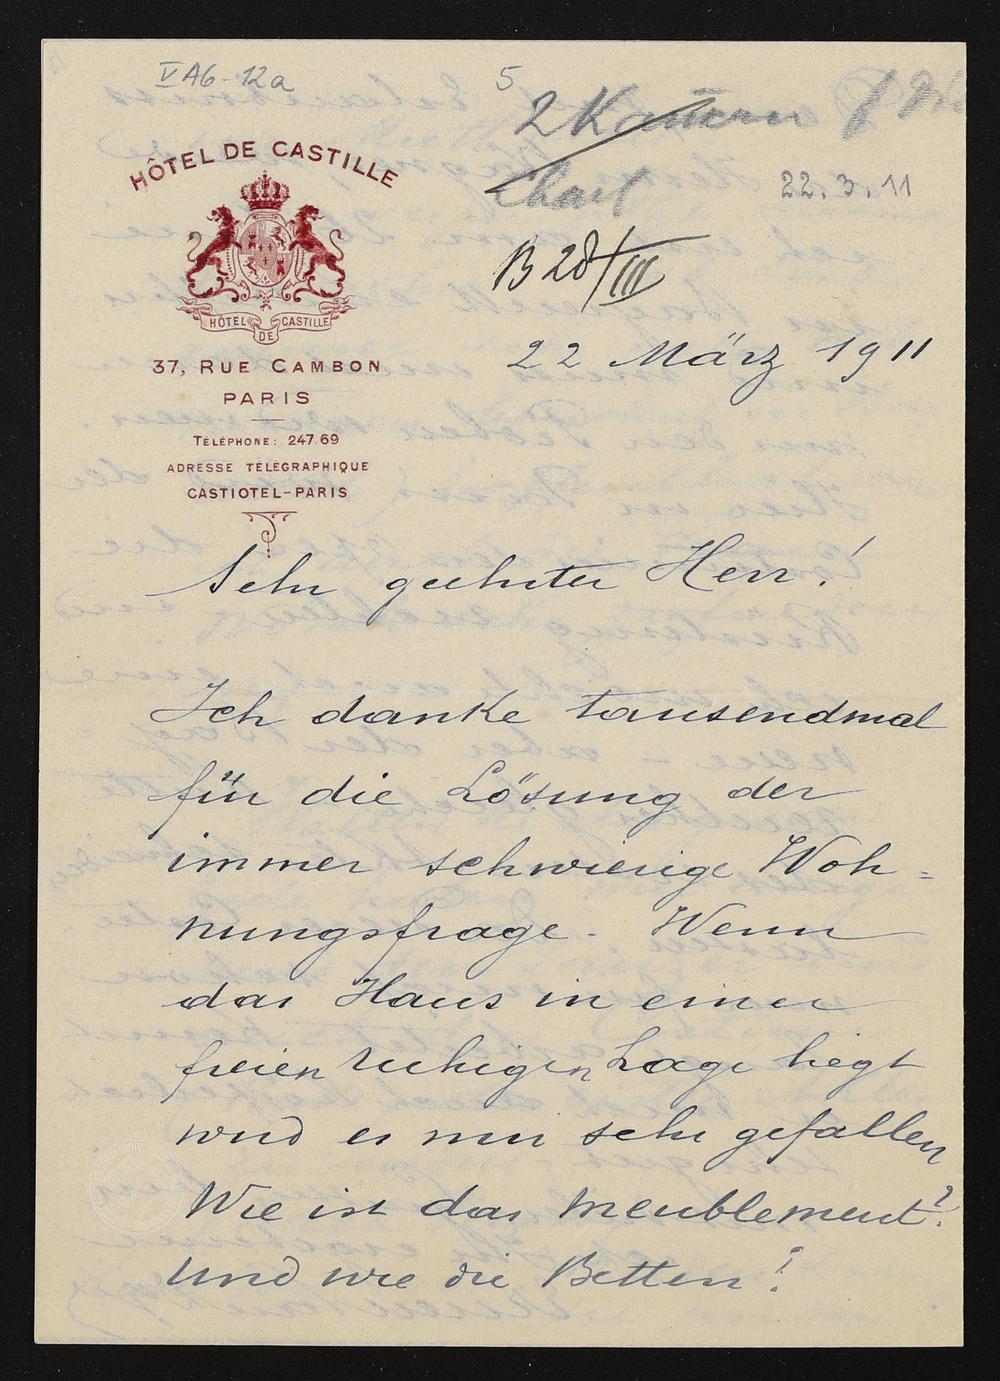 V A6-12a
5
22.3.11
HÔTEL DE CASTILLE
HÔTEL DE CASTILLE
37, RUE CAMBON
PARIS
TÉLÉPHONE: 247.69
ADRESSE TÉLÉGRAPHIQUE
CASTIOTEL-PARIS
B 28/III
22 März 1911
Sehr geehrter Herr!
Ich danke tausendmal
für die Lösung der
immer schwierige Woh=
nungsfrage. Wenn
das Haus in einer
freien ruhigen Lage liegt
wird es mir sehr gefallen
Wie ist das Meublement?
Und wie die Betten?